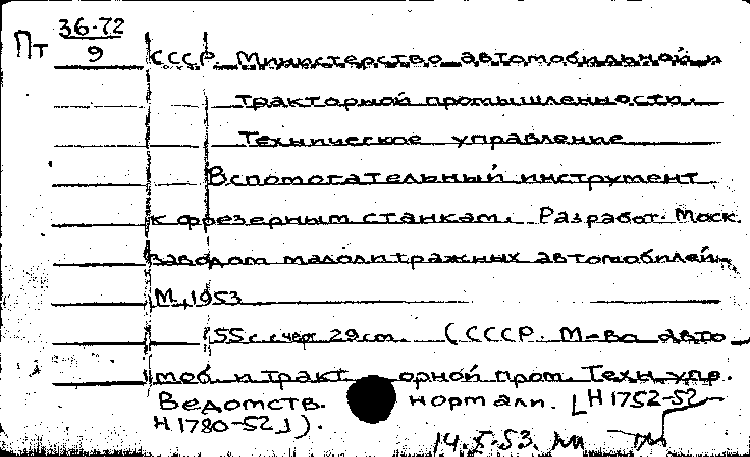 Пт 36-72
9
СССР. Министерство автомобильной и
тракторной промышленности.
Техническое управление
Вспомогательный инструмент
к фрезерным станкам. Разработ. Моск.
заводом малолитражных автомобилей.
М., 1953
55 с. с черт. 29 см. (СССР. М-во авто
моб. и тракт орной пром. Техн. упр.
Ведомств. нормали. [Н 1752-52 –
Н 1780-52]).
14.X.53.